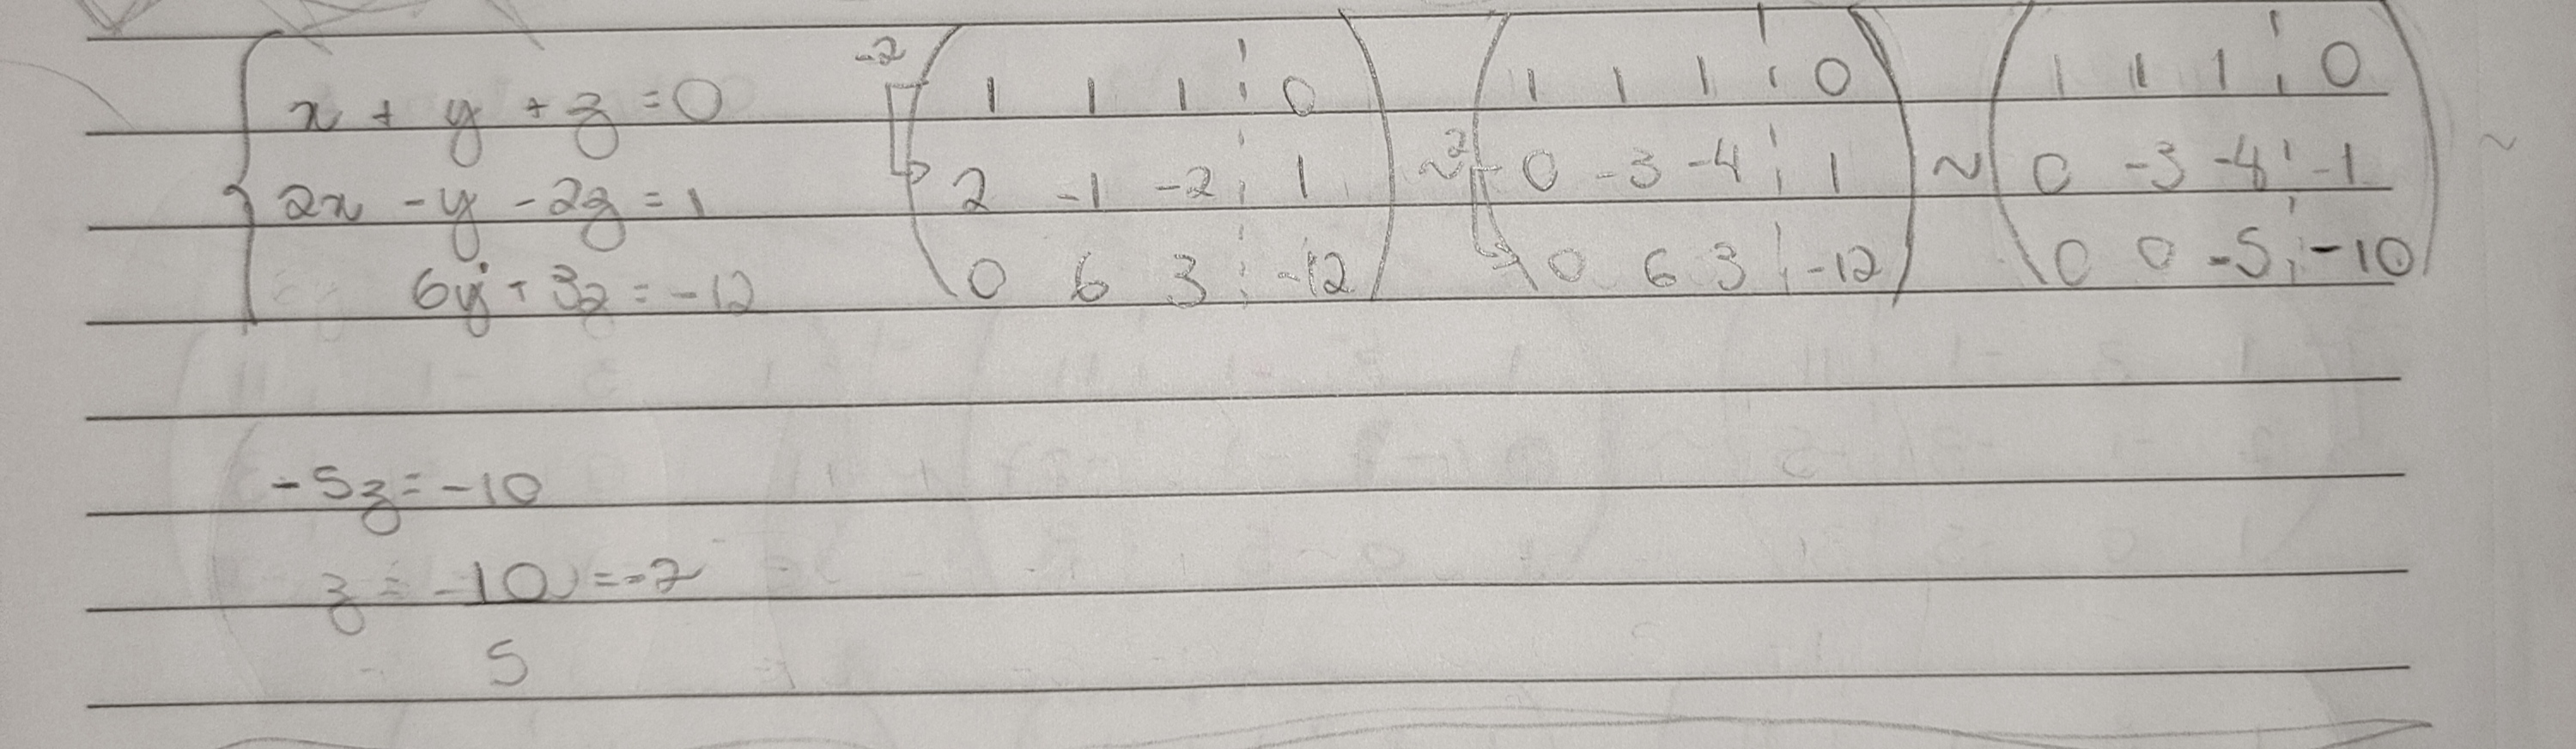 x + y + z = 0
2x - y - 2z = 1
6y + 3z = -12
-2
1 1 1 | 0
2 -1 -2 | 1
0 6 3 | -12
~ 2
1 1 1 | 0
0 -3 -4 | 1
0 6 3 | -12
~
1 1 1 | 0
0 -3 -4 | -1
0 0 -5 | -10
~
-5z = -10
z = -10 = -2
5